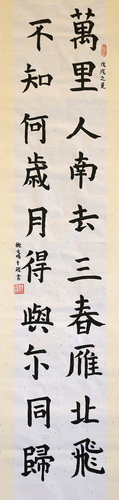 戊戌之夏
萬里人南去三春雁北飛
不知何歲月得與尔同歸